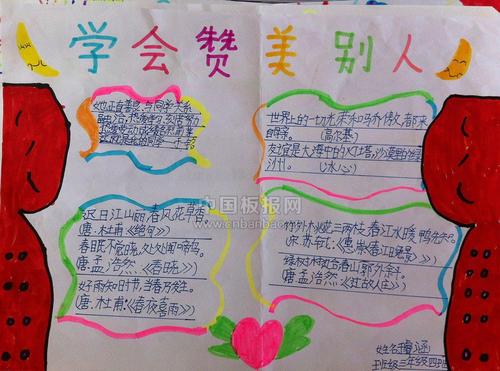 学会赞美别人
她正直善良,与同学关系
融洽,热爱学习,
世界上的一切光荣和骄傲,都来
自母亲。(高尔基)
友谊是大海中的灯塔,沙漠里的绿
洲。(冰心)
中国板报网
www.cnbanbao
迟日江山丽,春风花草香。
(唐·杜甫《绝句》)
春眠不觉晓,处处闻啼鸟。
唐·孟浩然·《春晓》
好雨知时节,当春乃发生。
(唐·杜甫·《春夜喜雨》)
竹外桃花三两枝,春江水暖鸭先知。
宋·苏轼:《惠崇春江晚景》
绿树村边合,青山郭外斜。
唐·孟浩然《过故人庄》
姓名:睿涵
班级:三年级四班